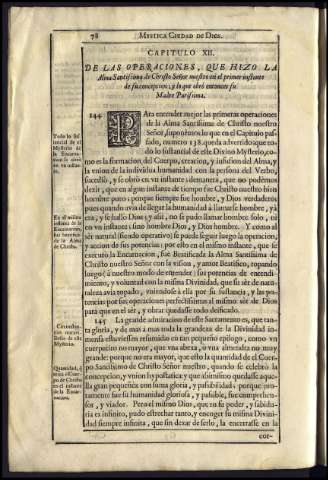 78 MYSTICA CIUDAD DE DIOS.
CAPITULO XII.
DE LAS OPERACIONES, QUE HIZO LA
Alma Santissima de Christo Señor nuestro en el primer instante
de su concepcion; y lo que obró entonces su
Madre Purissima.
144 PAra entender mejor las primeras operaciones
de la Alma Santissima de Christo nuestro
Señor, suponemos lo que en el Capitulo pas-
sado, numero 138. queda advertido: que to-
do lo substancial de este Divino Mysterio, co-
mo es la formacion del Cuerpo, creacion, y infusion del Alma, y
la union de la individua humanidad con la persona del Verbo,
sucedió, y se obró en un instante; de manera, que no podemos
dezir, que en algun instante de tiempo fue Christo nuestro bien
hombre puro; porque siempre fue hombre, y Dios verdadero:
pues quando avia de llegar la humanidad á llamarse hombre, ya
era, y se halló Dios; y assi, no se pudo llamar hombre solo, ni
en un instante; sino hombre Dios, y Dios hombre. Y como al
ser natural siendo operativo, se puede seguir luego la operacion,
y accion de sus potencias; por esto en el mismo instante, que se
executó la Encarnacion, fue Beatificada la Alma Santissima de
Christo nuestro Señor con la vision, y amor Beatifico, topando
luego (á nuestro modo de entender) sus potencias de entendi-
miento, y voluntad con la misma Divinidad, que su ser de natu-
raleza avia topado, uniendose á ella por su substancia, y las po-
tencias por sus operaciones perfectissimas al mismo ser de Dios
para que en el ser, y obrar quedasse todo deificado.
145 La grande admiracion de este Sacramento es, que tan-
ta gloria, y de mas á mas toda la grandeza de la Divinidad in-
mensa estuviesse resumida en tan pequeño epilogo, como un
cuerpecito no mayor, que una abeja, ó una almendra no muy
grande: porque no era mayor, que esto la quantidad de el Cuer-
po Santissimo de Christo Señor nuestro, quando se celebró la
concepcion, y union hypostatica; y que assimismo quedasse aque-
lla gran pequeñez con suma gloria, y passibilidad; porque jun-
tamente fue su humanidad gloriosa, y passible, fue comprehen-
sor, y viador. Pero el mismo Dios, que en su poder, y sabidu-
ria es infinito, pudo estrechar tanto, y encoger su misma Divini-
dad siempre infinita, que sin dexar de serlo, la encerrasse en la
cor-
Todo lo substancial de el Mysterio de la Encarnacion se obró en un instante.
En el mismo instante de la Encarnacion, fue beatificada la Alma de Christo.
Quantidad, que tenia el Cuerpo de Christo en el instante de la Encarnacion.